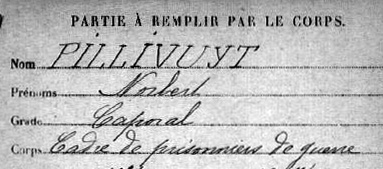 PARTIE À REMPLIR PAR LE CORPS.
Nom PILLIVUYT
Prénoms Norbert
Grade Caporal
Corps Cadre de prisonniers de guerre